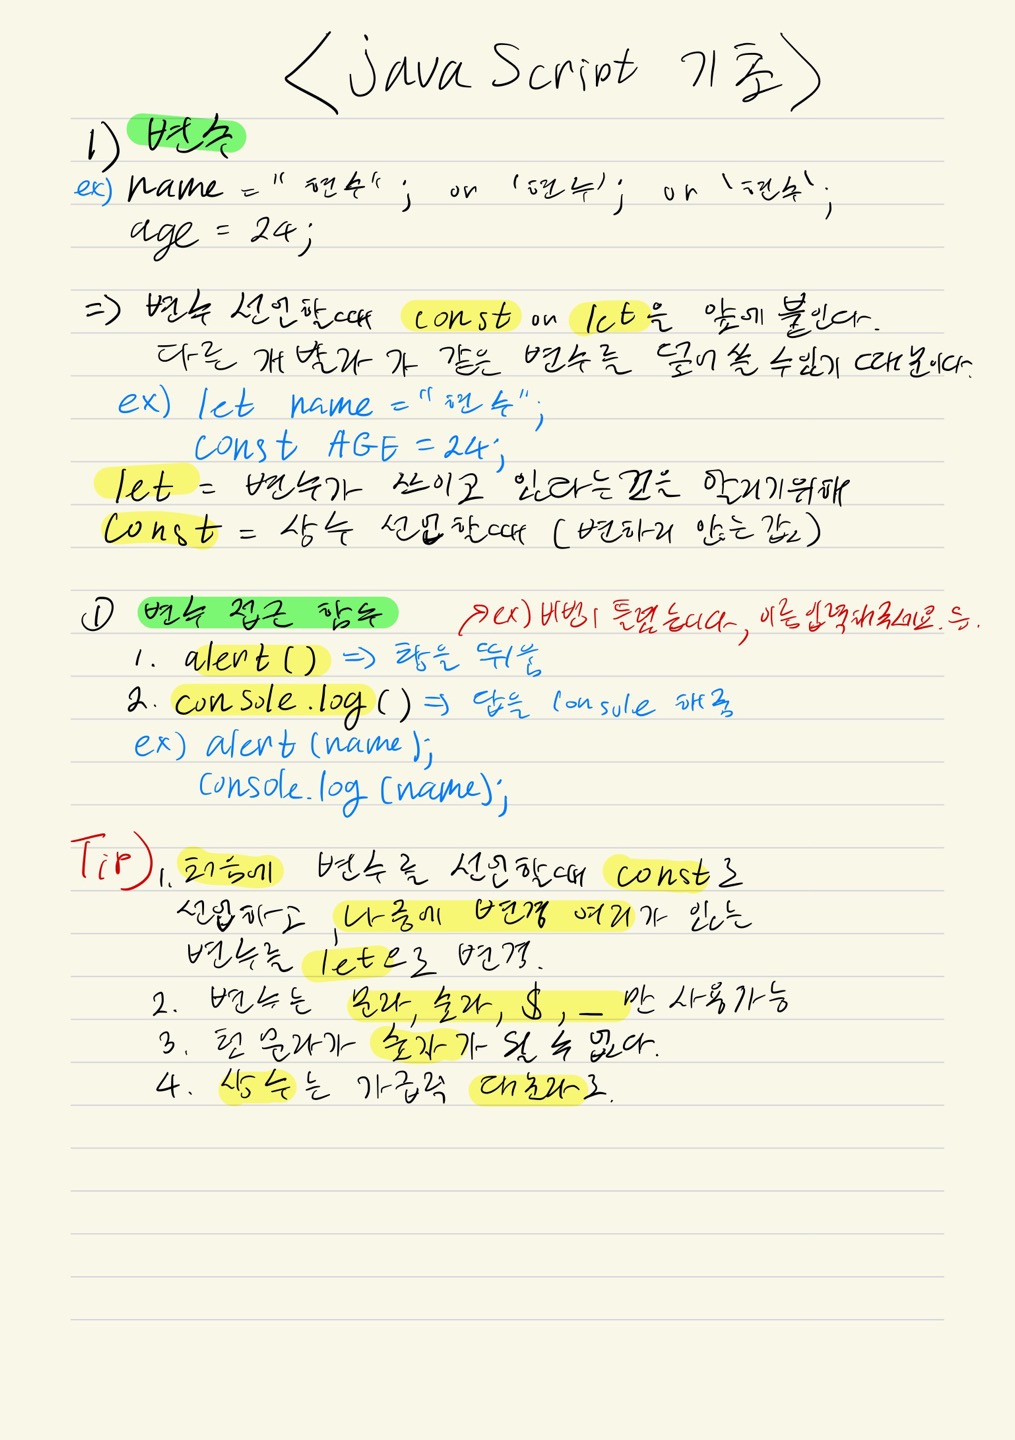 <javaScript 기초>
1) 변수
ex) name = "현수"; or '현수'; or `현수`;
age = 24;
=> 변수 선언할때 const or let을 앞에 붙인다.
다른 개발자가 같은 변수를 덮어 쓸 수 있기 때문이다.
ex) let name = "현수";
const AGE = 24;
let = 변수가 쓰이고 있다는 것을 알리기위해
const = 상수 선언할때 (변하지 않는 값)
① 변수 접근 함수
↗ex) 비번이 틀렸습니다, 이름 입력해주세요.등.
1. alert() => 창을 띄움
2. console.log() => 답을 console 해줌
ex) alert(name);
console.log(name);
Tip) 1. 처음에 변수를 선언할때 const로
선언하고, 나중에 변경 여지가 있는
변수를 let으로 변경.
2. 변수는 문자, 숫자, $, _ 만 사용가능
3. 첫 문자가 숫자가 될 수 없다.
4. 상수는 가급적 대문자로.